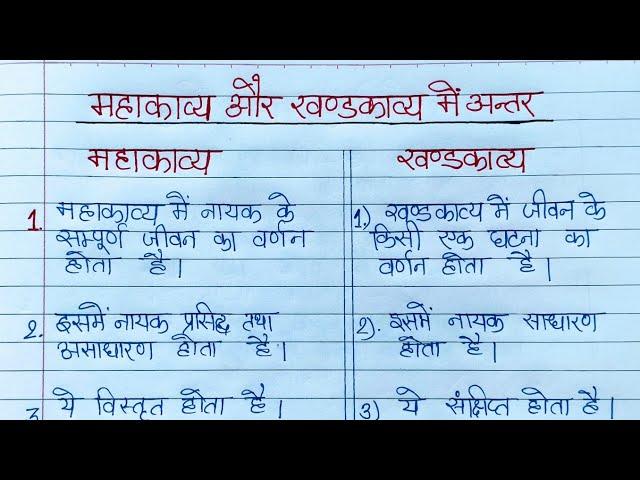 महाकाव्य और खण्डकाव्य में अन्तर
महाकाव्य
1. महाकाव्य में नायक के
सम्पूर्ण जीवन का वर्णन
होता है।
2. इसमें नायक प्रसिद्ध तथा
असाधारण होता है।
3. ये विस्तृत होता है।
खण्डकाव्य
1) खण्डकाव्य में जीवन के
किसी एक घटना का
वर्णन होता है।
2). इसमें नायक साधारण
होता है।
3) ये संक्षिप्त होता है।